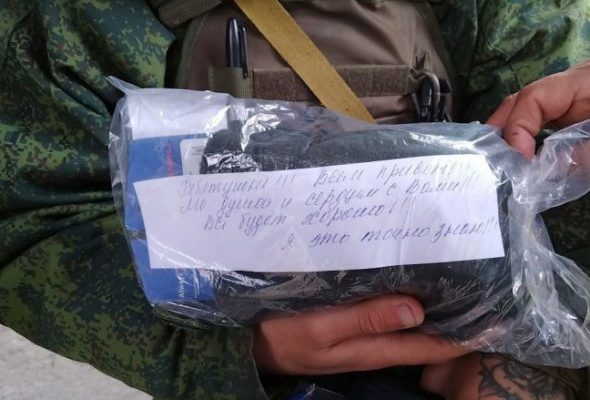 Ребятушки!!! Всем привет!!!
Мы душой и сердцем с Вами!!!
Всё будет хорошо!!!
Я это точно знаю!!!